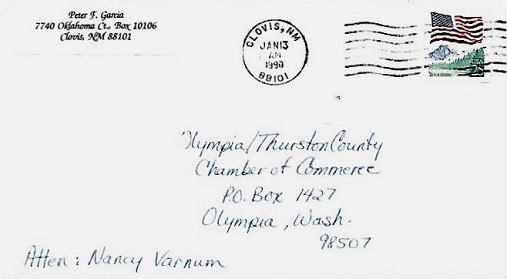 Peter F. Garcia
7740 Oklahoma Ct., Box 10106
Clovis, NM 88101
CLOVIS, NM
JAN 13
AM
1990
88101
Yosemite
Olympia/Thurston County
Chamber of Commerce
P.O. Box 1427
Olympia, Wash.
98507
Atten: Nancy Varnum